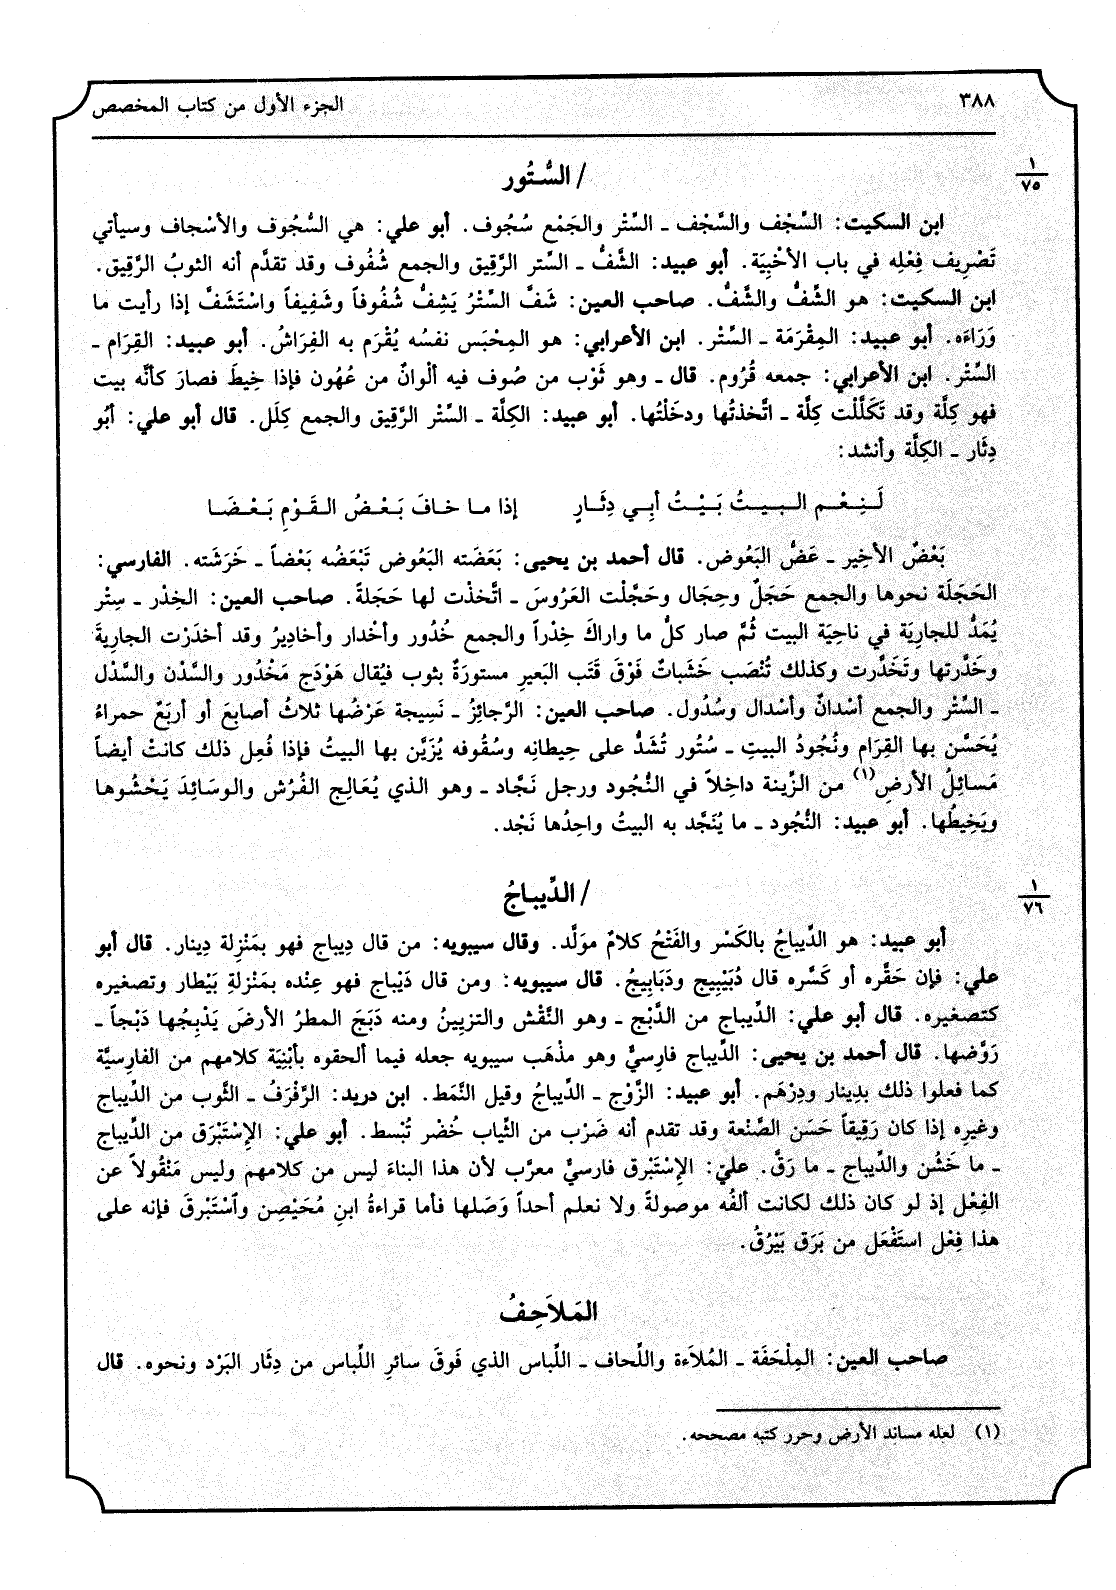 ٣٨٨ الجزء الأول من كتاب المخصص
١
٧٥
/ السُّتُور
ابن السكيت: السِّجْف والسَّجْف ـ السِّتْر والجَمْع سُجُوف. أبو علي: هي السُّجُوف والأسْجاف وسيأتي
تَصْرِيف فِعْلِه في باب الأخْبِيَة. أبو عبيد: الشَّفُّ ـ السِّتر الرَّقِيق والجمع شُفُوف وقد تقدَّم أنه الثوبُ الرَّقِيق.
ابن السكيت: هو الشَّفُّ والشِّفُّ. صاحب العين: شَفَّ السِّتْرُ يَشِفُّ شُفُوفاً وشَفِيفاً واسْتَشَفَّ إذا رأيت ما
وَرَاءَه. أبو عبيد: المِقْرَمَة ـ السِّتْر. ابن الأعرابي: هو المِحْبَس نفسُه يُقْرَم به الفِرَاشُ. أبو عبيد: القِرَام ـ
السِّتْر. ابن الأعرابي: جمعه قُرُوم. قال ـ وهو ثَوْب من صُوف فيه ألْوانٌ من عُهُون فإذا خِيطَ فصارَ كأنَّه بيت
فهو كِلَّة وقد تَكَلَّلْت كِلَّة ـ اتَّخذتُها ودخَلْتُها. أبو عبيد: الكِلَّة ـ السِّتْر الرَّقِيق والجمع كِلَل. قال أبو علي: أبُو
دِثَار ـ الكِلَّة وأنشد:
لَـنِـعْـم الـبـيـتُ بَـيْـتُ أبـي دِثَـارٍ إذا مـا خـافَ بَـعْـضُ الـقَـوْمِ بَـعْـضَـا
بَعْضٌ الأخِير ـ عَضُّ البَعُوض. قال أحمد بن يحيى: بَعَضَته البَعُوض تَبْعَضُه بَعْضاً ـ خَرَشَته. الفارسي:
الحَجَلَة نحوها والجمع حَجَلٌ وحِجَال وحَجَّلْت العَرُوسَ ـ اتَّخذت لها حَجَلةً. صاحب العين: الخِدْر ـ سِتْر
يُمَدُّ للجارِيَة في ناحِيَة البيت ثُمَّ صار كلُّ ما واراكَ خِدْراً والجمع خُدُور وأخْدار وأخادِيرُ وقد أخدَرْت الجارِيةَ
وخَدَّرتها وتَخَدَّرت وكذلك تُنْصَب خَشَباتٌ فَوْقَ قَتَب البَعيرِ مستورَةٌ بثوب فيُقال هَوْدَج مَخْدُور والسَّدْن والسَّدْل
ـ السِّتْر والجمع أسْدانٌ وأسْدال وسُدُول. صاحب العين: الرَّجائِزُ ـ نَسِيجة عَرْضُها ثلاثُ أصابعَ أو أربَعٌ حمراءُ
يُحَسَّن بها القِرَام ونُجُودُ البيتِ ـ سُتُور تُشَدُّ على حِيطانِه وسُقُوفه يُزَيَّن بها البيتُ فإذا فُعِل ذلك كانتْ أيضاً
مَسائِلُ الأرضِ(١) من الزِّينة داخِلاً في النُّجُود ورجل نَجَّاد ـ وهو الذي يُعَالِج الفُرُش والوسَائِدَ يَحْشُوها
ويَخِيطُها. أبو عبيد: النُّجُود ـ ما يُنَجَّد به البيتُ واحِدُها نَجْد.
١
٧٦
/ الدِّيباجُ
أبو عبيد: هو الدِّيباجُ بالكَسْر والفَتْحُ كلامٌ مولَّد. وقال سيبويه: من قال دِيباج فهو بمَنْزِلة دِينار. قال أبو
علي: فإن حَقَّره أو كَسَّره قال دُبَيْبِيج ودَبَابِيجُ. قال سيبويه: ومن قال دَيْباج فهو عِنْده بمَنْزلةِ بَيْطار وتصغيره
كتصغيره. قال أبو علي: الدِّيباج من الدَّبْج ـ وهو النَّقْش والتزيِينُ ومنه دَبَجَ المطرُ الأرضَ يَدْبِجُها دَبْجاً ـ
رَوَّضها. قال أحمد بن يحيى: الدِّيباج فارِسيٌّ وهو مذْهَب سيبويه جعله فيما ألحقوه بأبْنِيَة كلامهم من الفارِسيَّة
كما فعلوا ذلك بدِينار ودِرْهَم. أبو عبيد: الزَّوْج ـ الدِّيباجُ وقيل النَّمَط. ابن دريد: الرَّفْرَفُ ـ الثَّوب من الدِّيباج
وغيرِه إذا كان رَقِيقاً حَسَن الصَّنْعة وقد تقدم أنه ضَرْب من الثِّياب خُضْر تُبْسط. أبو علي: الإسْتَبْرَق من الدِّيباج
ـ ما خَشُن والدِّيباج ـ ما رَقَّ. عليّ: الإسْتَبْرق فارسيٌّ معرَّب لأن هذا البناءَ ليس من كلامهم وليس مَنْقُولاً عن
الفِعْل إذ لو كان ذلك لكانت ألفُه موصولةً ولا نعلم أحداً وَصَلها فأما قراءةُ ابنِ مُحَيْصِن وٱسْتَبْرقَ فإنه على
هذا فِعْل استَفْعَل من بَرَق يَبْرُقُ.
المَلاَحِفُ
صاحب العين: المِلْحَفَة ـ المُلاَءة واللِّحاف ـ اللِّباس الذي فَوقَ سائرِ اللِّباس من دِثَار البَرْد ونحوه. قال
(١) لعله مساند الأرض وحرر كتبه مصححه.